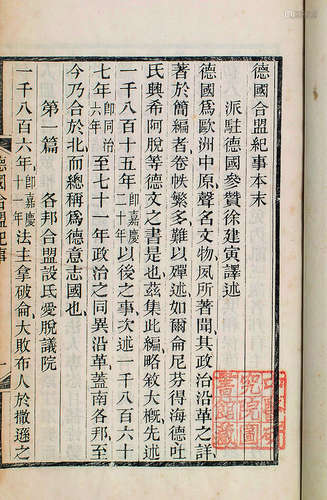 德國合盟紀事本末
派駐德國參贊徐建寅譯述
德國爲歐洲中原聲名文物夙所著聞其政治沿革之詳
著於簡編者卷帙繁多難以殫述如爾侖尼芬得海德吐
氏興希阿脫等德文之書是也茲集此編略敘大概先述
一千八百十五年卽嘉慶二十年以後之事次述一千八百六十
七年卽同治六年至七十一年政治之同異沿革蓋南各邦至
今乃合於北而總稱爲德意志國也
第 篇 各邦合盟設氏愛脫議院
一千八百六年卽嘉慶十一年法主拿破侖大敗布人於撒遜之
德國合盟紀事
一
究院圖
書館藏